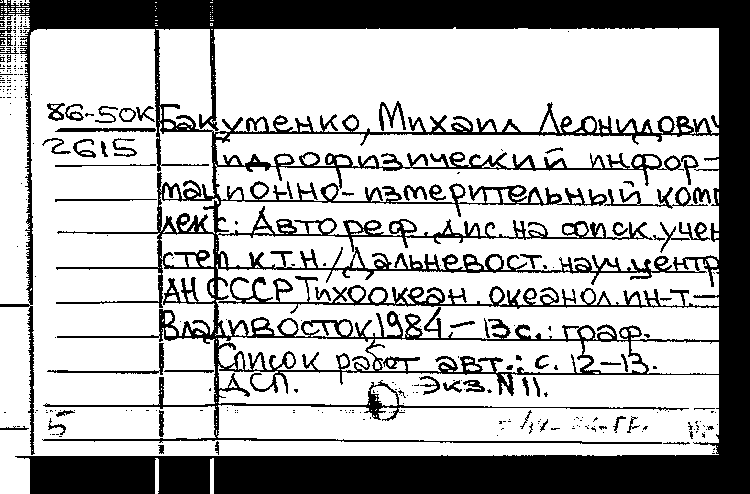 86-50К Бакутенко, Михаил Леонидович
2615 Гидрофизический инфор-
мационно-измерительный комп
лекс: Автореф. дис. на соиск. учен
степ. к.т.н. / Дальневост. науч. центр
АН СССР, Тихоокеан. океанол. ин-т. —
Владивосток, 1984. — 13 с.: граф.
Список работ авт.: с. 12-13.
ДСП. Экз. N 11.
5